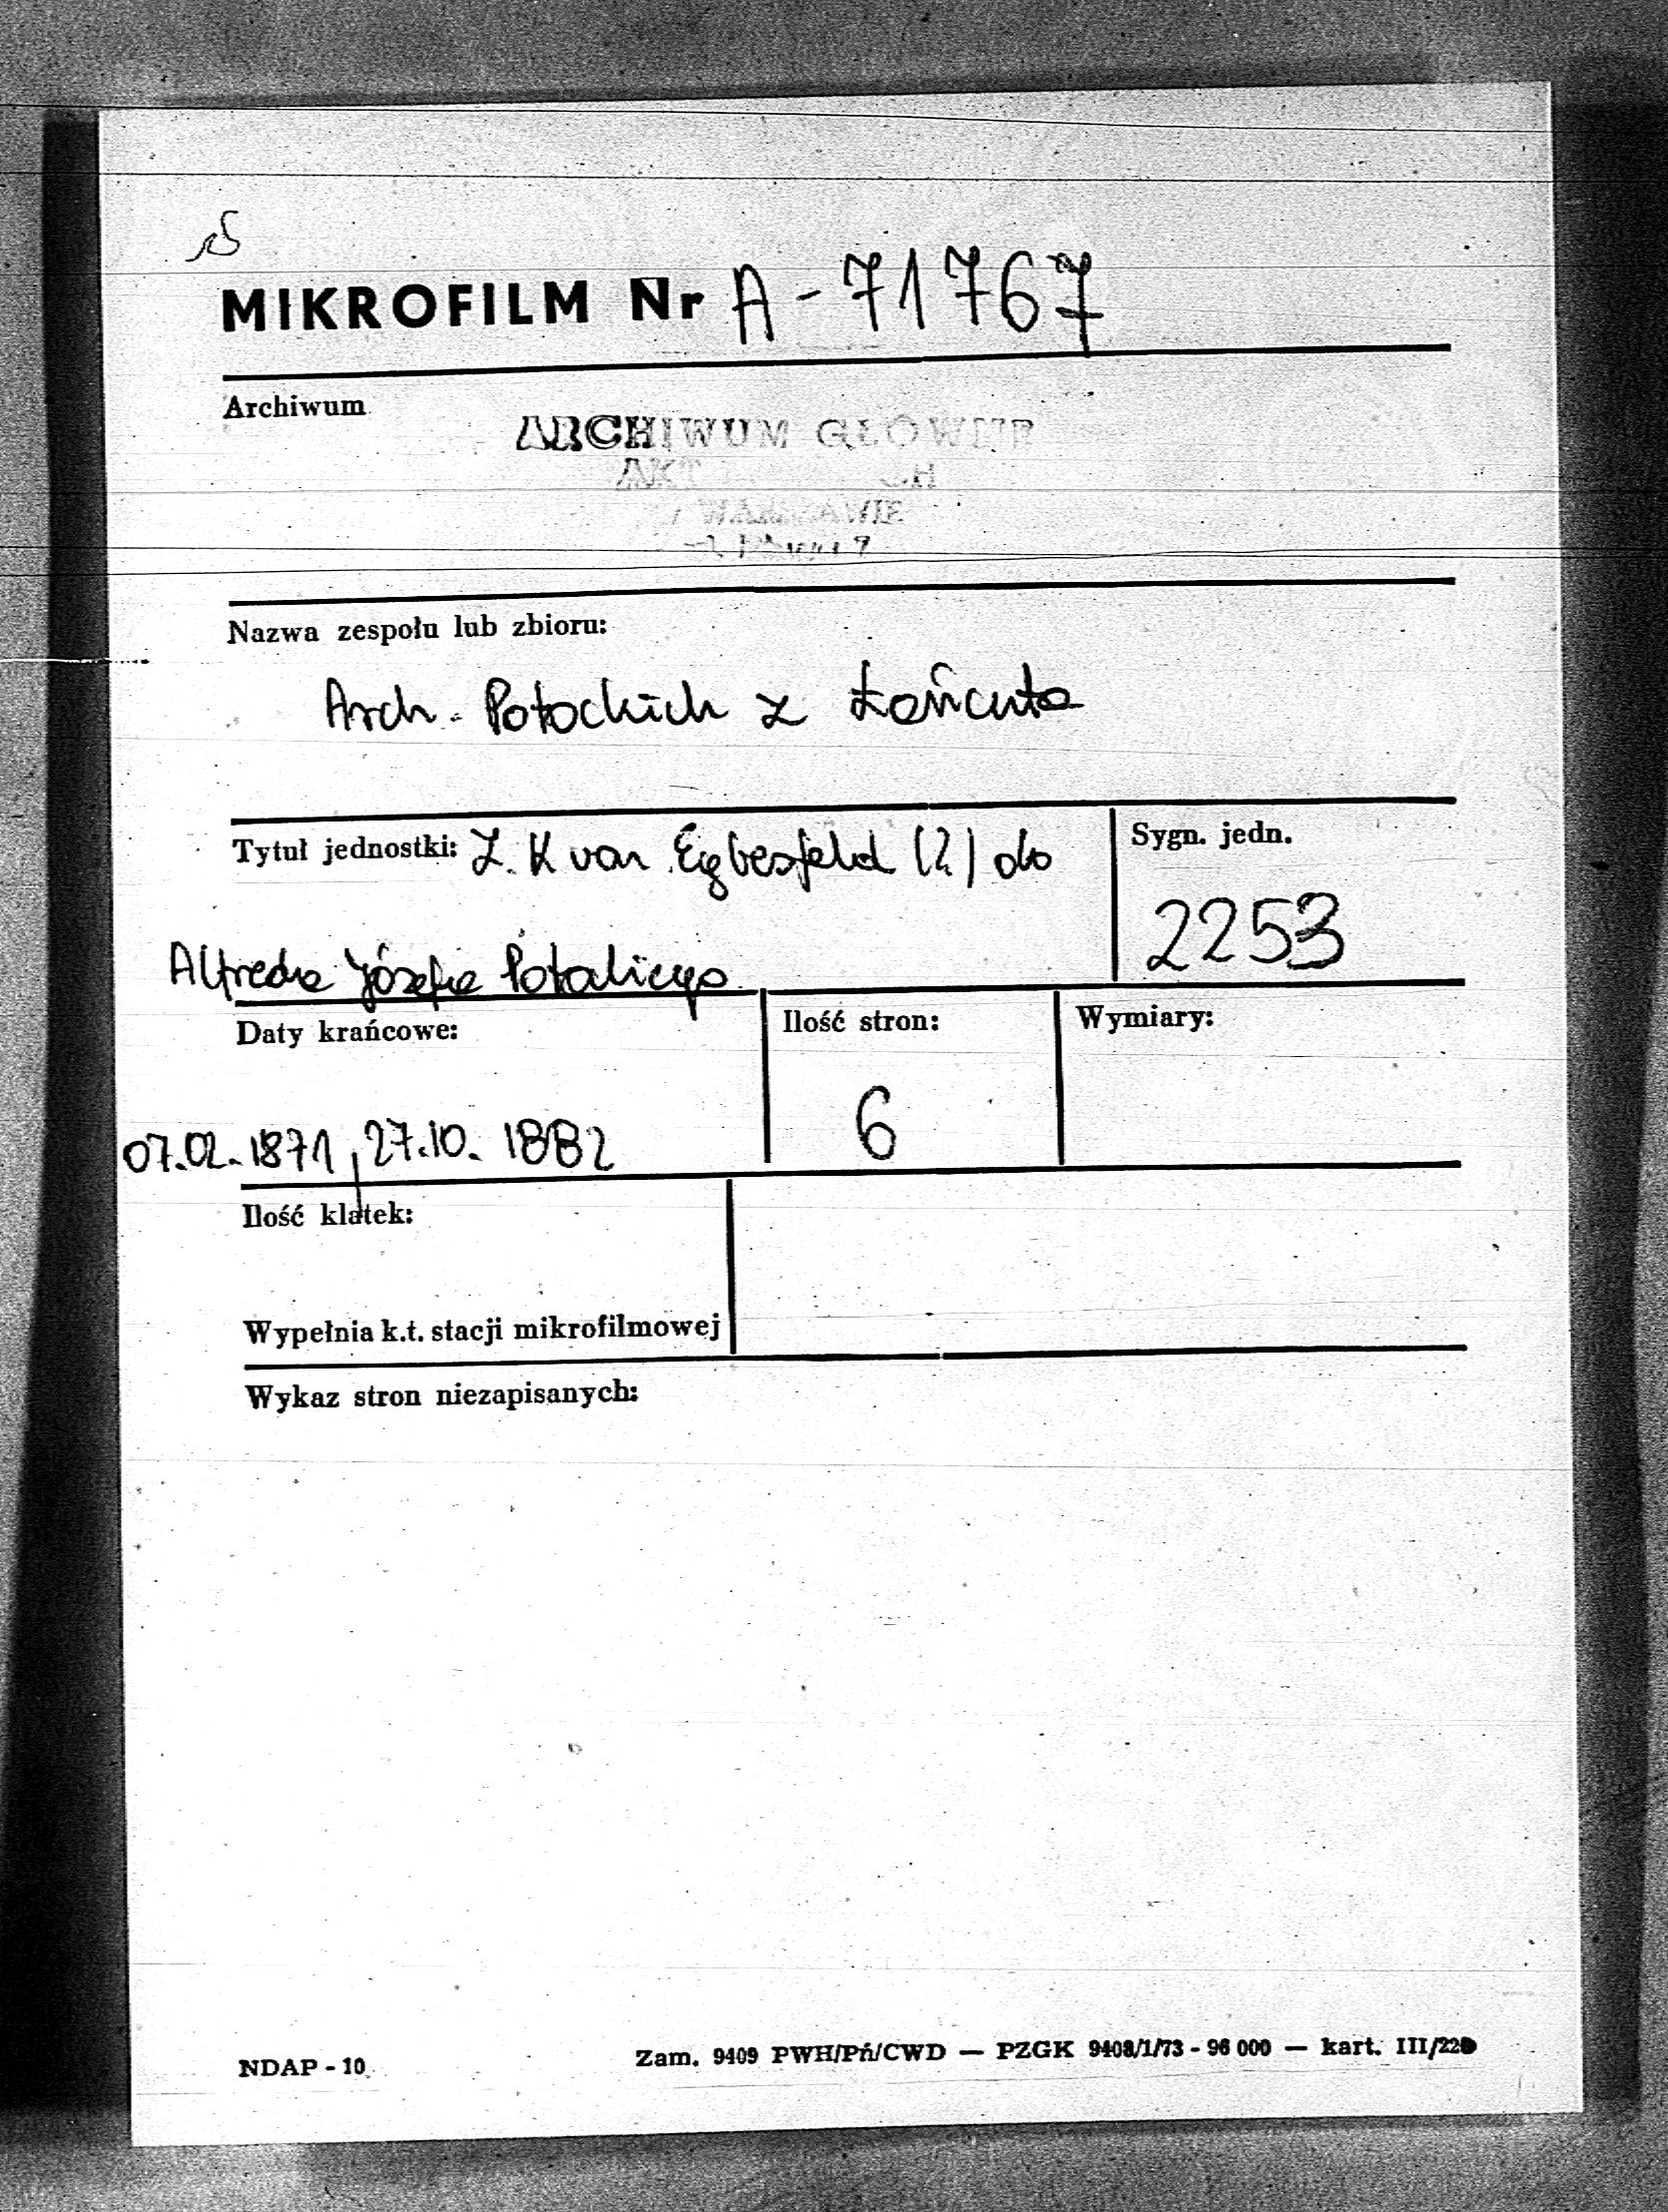 MIKROFILM Nr A-71767
Archiwum
ARCHIWUM GŁÓWNE
AKT
WARSZAWIE
Nazwa zespołu lub zbioru:
Arch. Potockich z Łańcuta
Tytuł jednostki: Z. K von Egbesfeld (?) do
Sygn. jedn.
2253
Alfreda Józefa Potockiego
Daty krańcowe:
Ilość stron:
Wymiary:
07.02.1871, 27.10.1882
6
Ilość klatek:
Wypełnia k.t. stacji mikrofilmowej
Wykaz stron niezapisanych:
NDAP - 10
Zam. 9409 PWH/Pń/CWD — PZGK 9408/1/73 - 96 000 — kart. III/220